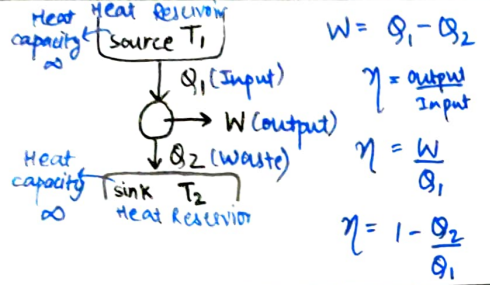 Heat Reservior
Heat
capacity
∞
source T₁
Q₁ (Input)
W (output)
Q₂ (Waste)
Heat
capacity
∞
sink T₂
Heat Reservior
W = Q₁ - Q₂
η = output/Input
η = W/Q₁
η = 1 - Q₂/Q₁